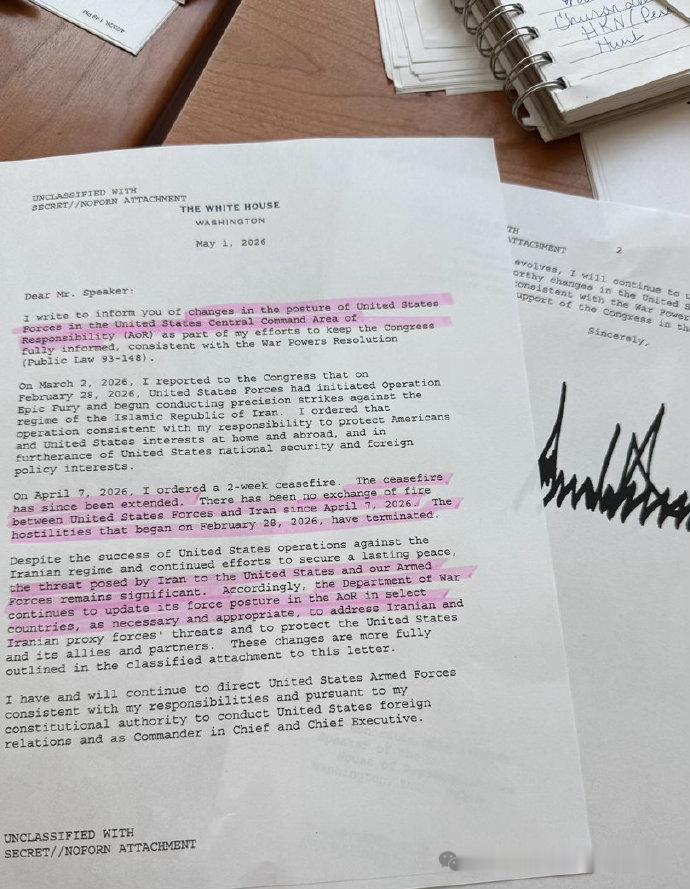 4/30/26, 1:49 PM
HKN/
Hunt
UNCLASSIFIED WITH
SECRET//NOFORN ATTACHMENT
THE WHITE HOUSE
WASHINGTON
May 1, 2026
Dear Mr. Speaker:
I write to inform you of changes in the posture of United States
Forces in the United States Central Command Area of
Responsibility (AoR) as part of my efforts to keep the Congress
fully informed, consistent with the War Powers Resolution
(Public Law 93-148).
On March 2, 2026, I reported to the Congress that on
February 28, 2026, United States Forces had initiated Operation
Epic Fury and begun conducting precision strikes against the
regime of the Islamic Republic of Iran. I ordered that
operation consistent with my responsibility to protect Americans
and United States interests at home and abroad, and in
furtherance of United States national security and foreign
policy interests.
On April 7, 2026, I ordered a 2-week ceasefire. The ceasefire
has since been extended. There has been no exchange of fire
between United States Forces and Iran since April 7, 2026. The
hostilities that began on February 28, 2026, have terminated.
Despite the success of United States operations against the
Iranian regime and continued efforts to secure a lasting peace,
the threat posed by Iran to the United States and our Armed
Forces remains significant. Accordingly, the Department of War
continues to update its force posture in the AoR in select
countries, as necessary and appropriate, to address Iranian and
Iranian proxy forces' threats and to protect the United States
and its allies and partners. These changes are more fully
outlined in the classified attachment to this letter.
I have and will continue to direct United States Armed Forces
consistent with my responsibilities and pursuant to my
constitutional authority to conduct United States foreign
relations and as Commander in Chief and Chief Executive.
UNCLASSIFIED WITH
SECRET//NOFORN ATTACHMENT
TH
ATTACHMENT
2
evolves, I will continue to
orthy changes in the United S
consistent with the War Power
upport of the Congress in th
Sincerely,